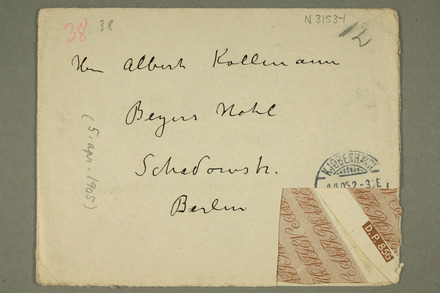 38 38
N 3153-1
12
Herr Albert Kollmann
Beyers Hotel
Schadowstr.
Berlin
(5. apr. 1905)
KJØBENHAVN
D. P. 856